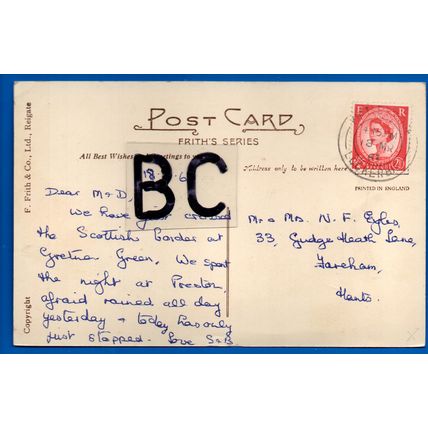 POST CARD
FRITH'S SERIES
All Best Wishes
Greetings to
Address only to be written here
PRINTED IN ENGLAND
F. Frith & Co., Ltd., Reigate
Copyright
BC
E R
Dear M & D,
We have
crossed
the Scottish Border at
Gretna Green. We spent
the night at Preston,
afraid rained all day
yesterday & today has only
just stopped. Love S & B
Mr & Mrs. N. F. Eyles,
33, Gudge Heath Lane,
Fareham,
Hants.